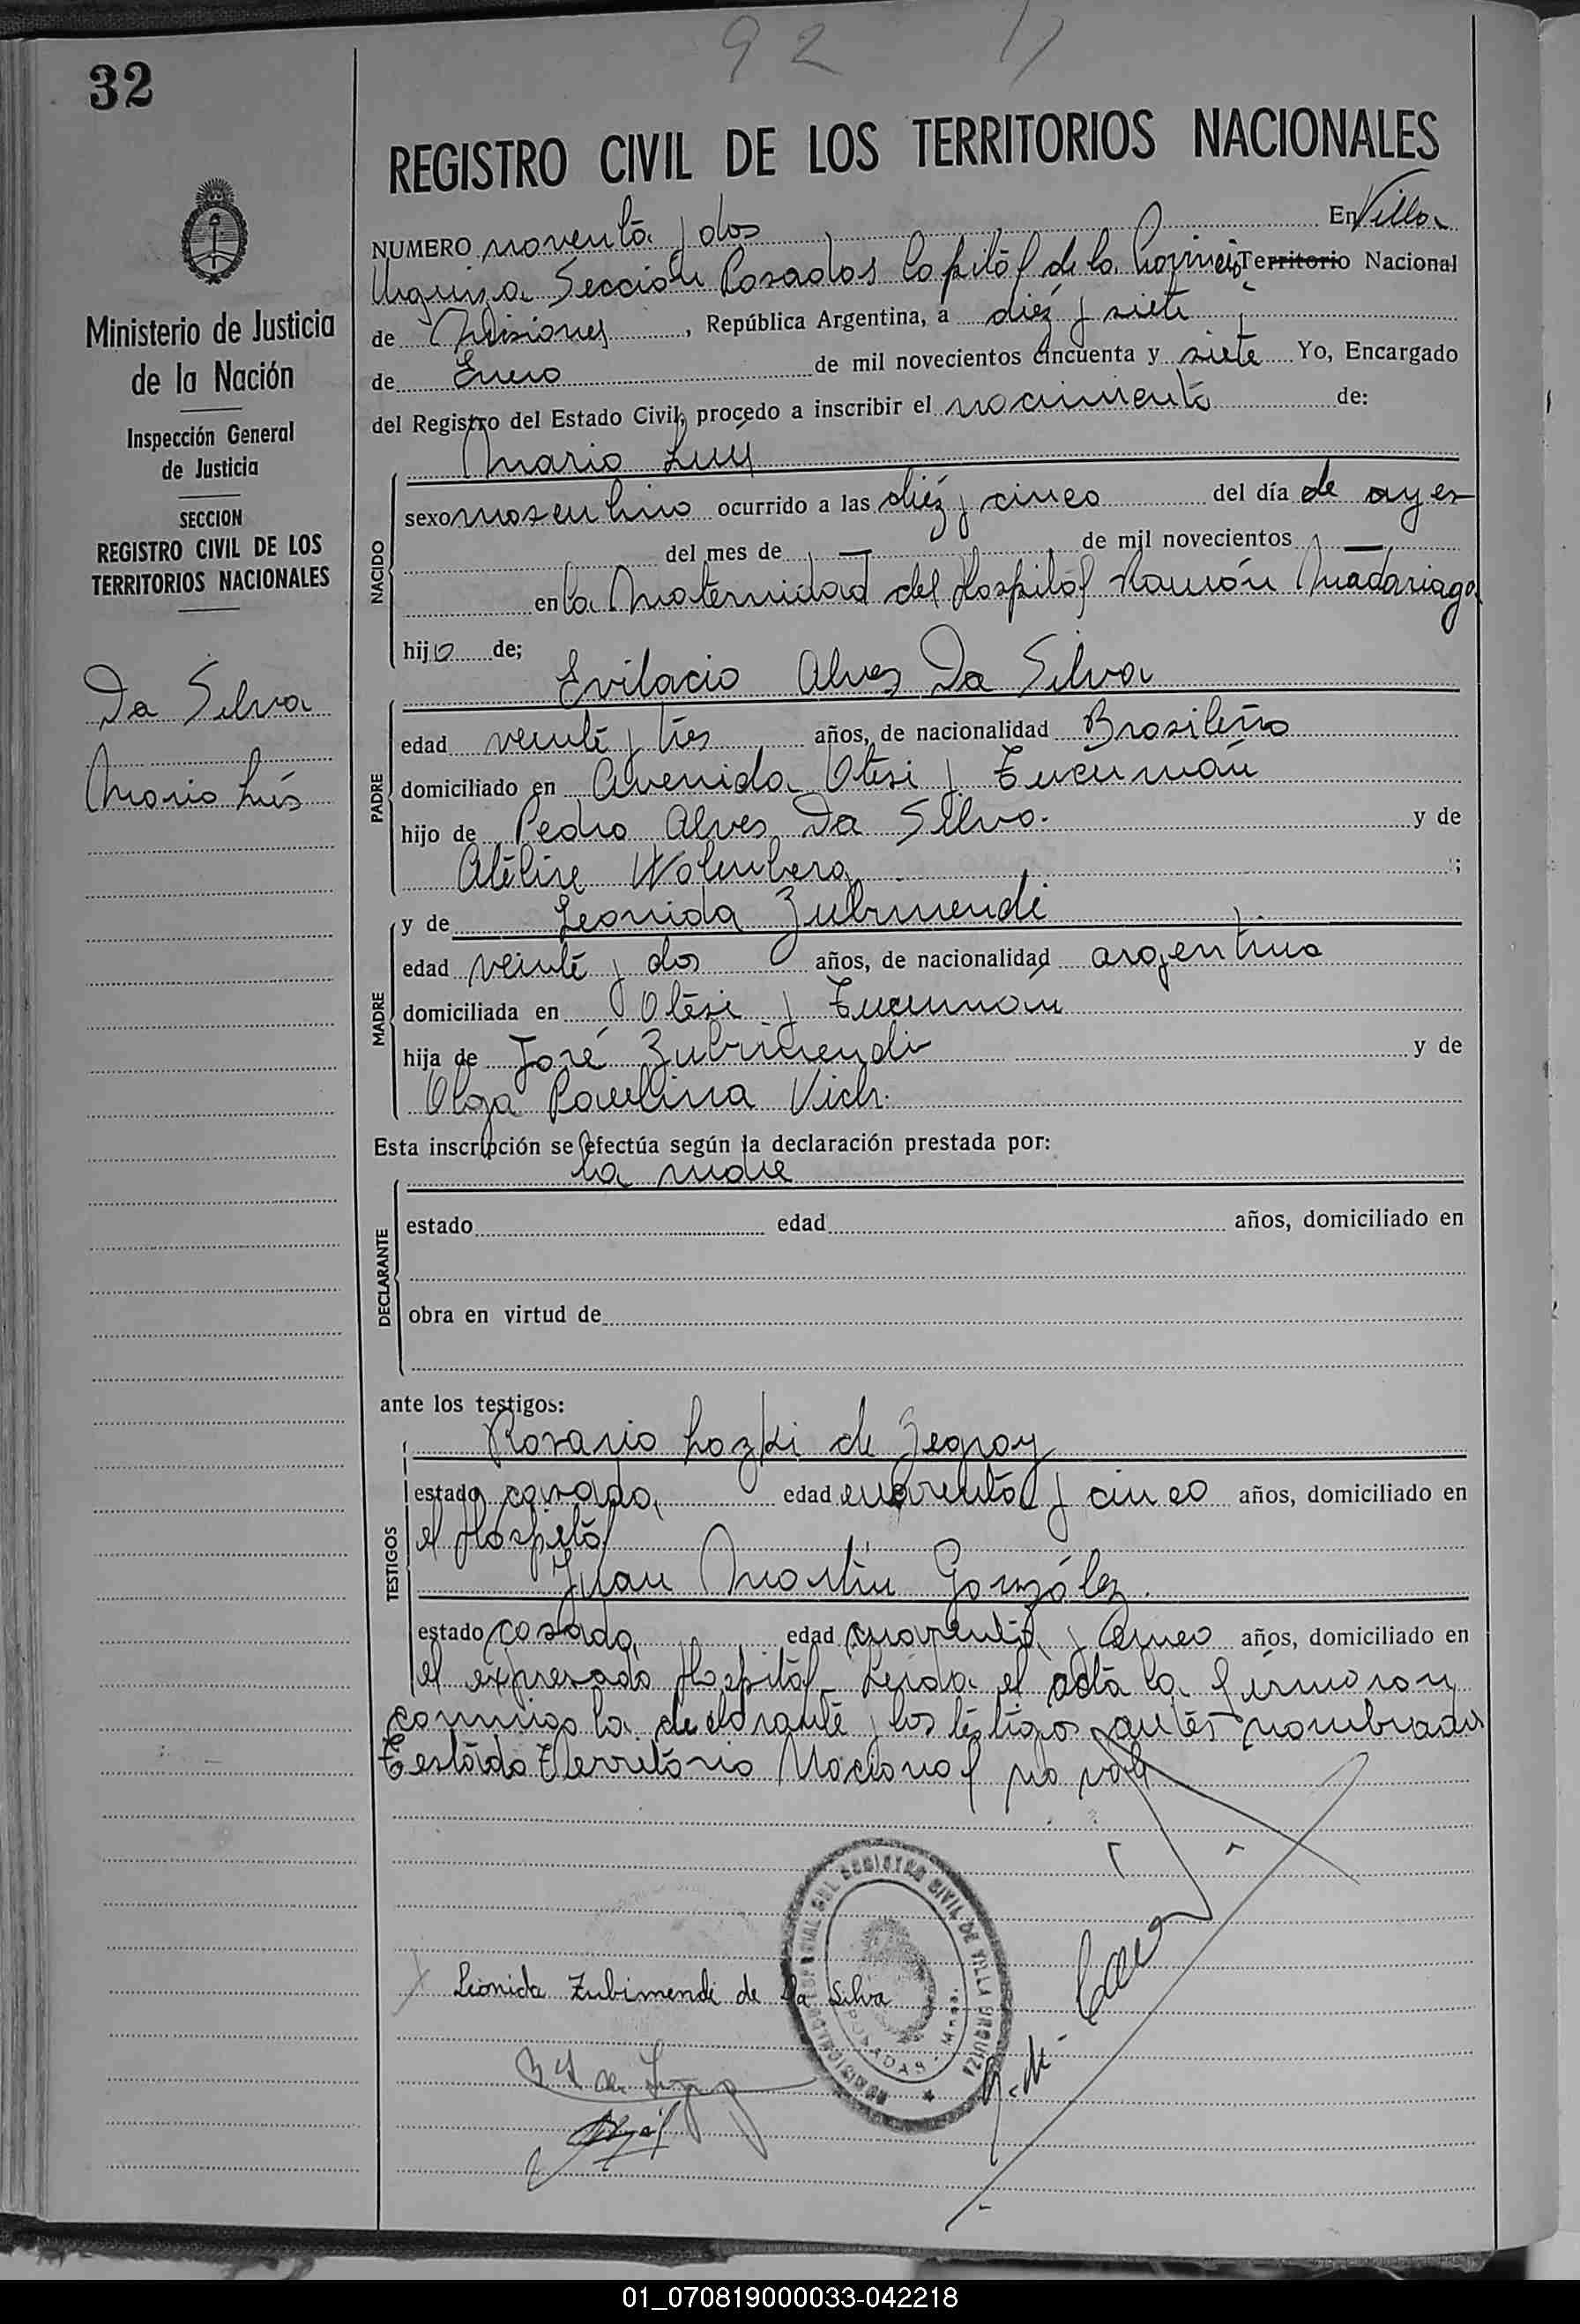 92
32
REGISTRO CIVIL DE LOS TERRITORIOS NACIONALES
Ministerio de Justicia
de la Nación
Inspección General
de Justicia
SECCION
REGISTRO CIVIL DE LOS
TERRITORIOS NACIONALES
Da Silva
Mario Luis
NUMERO noventa y dos En Villa
Urquiza Sección Posadas Capital de la Provincia Territorio Nacional
de Misiones, República Argentina, a diez y siete
de Enero de mil novecientos cincuenta y siete Yo, Encargado
del Registro del Estado Civil, procedo a inscribir el nacimiento de:
Mario Luis
NACIDO
sexo masculino ocurrido a las diéz y cinco del día de ayer
del mes de — de mil novecientos —
en la Maternidad del Hospital Ramón Madariaga
hijo de;
Evilacio Alves Da Silva
PADRE
edad veinte y tres años, de nacionalidad Brasileño
domiciliado en Avenida Otesi y Tucumán
hijo de Pedro Alves Da Silva. y de
;
y de Leonida Zubimendi
MADRE
edad veinte y dos años, de nacionalidad argentina
domiciliada en Otesi y Tucumán
hija de José Zubimendi y de
Olga Paulina Vich.
Esta inscripción se efectúa según la declaración prestada por:
la madre
DECLARANTE
estado edad años, domiciliado en
obra en virtud de
ante los testigos:
TESTIGOS
Rosario Lozki de
estado casada edad cuarenta y cinco años, domiciliado en
el Hospital
Juan Martin González.
estado casado edad cuarenta y cinco años, domiciliado en
el expresado Hospital Leida el acta la firmaron
conmigo la declarante y los testigos antes nombrados
Testado Territorio Nacional no vale
REGISTRO CIVIL DE VILLA URQUIZA
POSADAS - Mnes.
Leonida Zubimendi de Da Silva
01_070819000033-042218